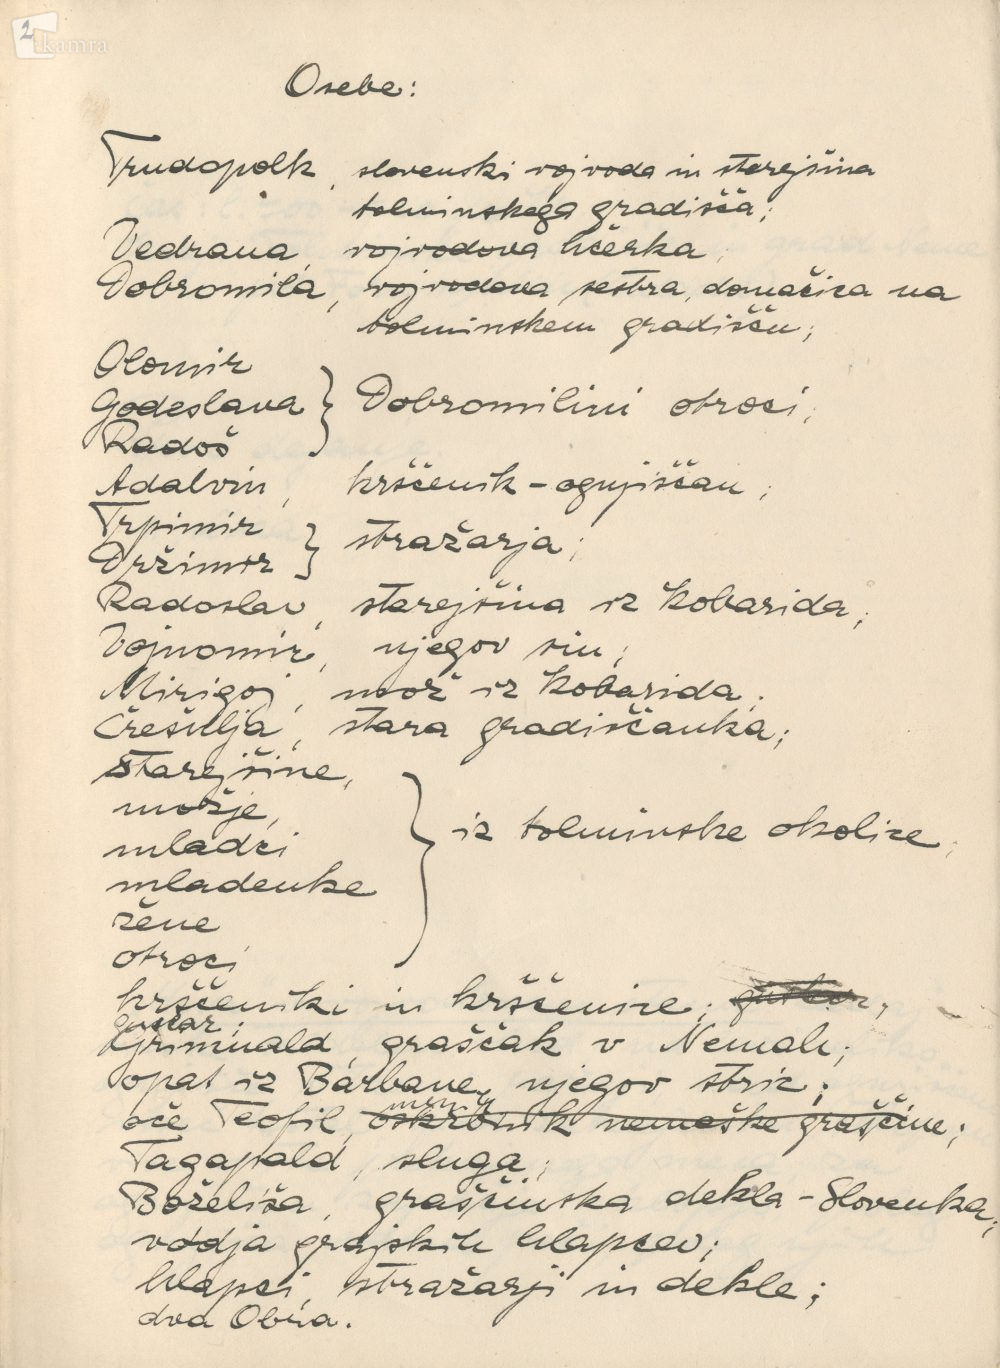 2
kamra
Osebe:
Trudopolk, slovenski vojvoda in starejšina
tolminskega gradišča;
Vedrana, vojvodova hčerka;
Dobromila, vojvodova sestra, domačica na
tolminskem gradišču;
Olomir
Godeslava } Dobromilini otroci;
Radoš
Adalvin, krščenik - ognjiščan;
Trpimir
Držimir } stražarja;
Radoslav, starejšina iz Kobarida;
Vojnomir, njegov sin;
Mirigoj, mož iz Kobarida;
Črešnja, stara gradiščanka;
Starejšine,
možje,
mladci
mladenke } iz tolminske okolice;
žene
otroci
krščeniki in krščenice;
guslar;
Grimuald, graščak v Nemah;
opat iz Barbane, njegov stric;
menih
oče Teofil, oskrbnik nemaške graščine;
Tagapald, sluga;
Boželiša, graščinska dekla - Slovenka;
vodja grajskih hlapcev;
hlapci, stražarji in dekle;
dva Obra.